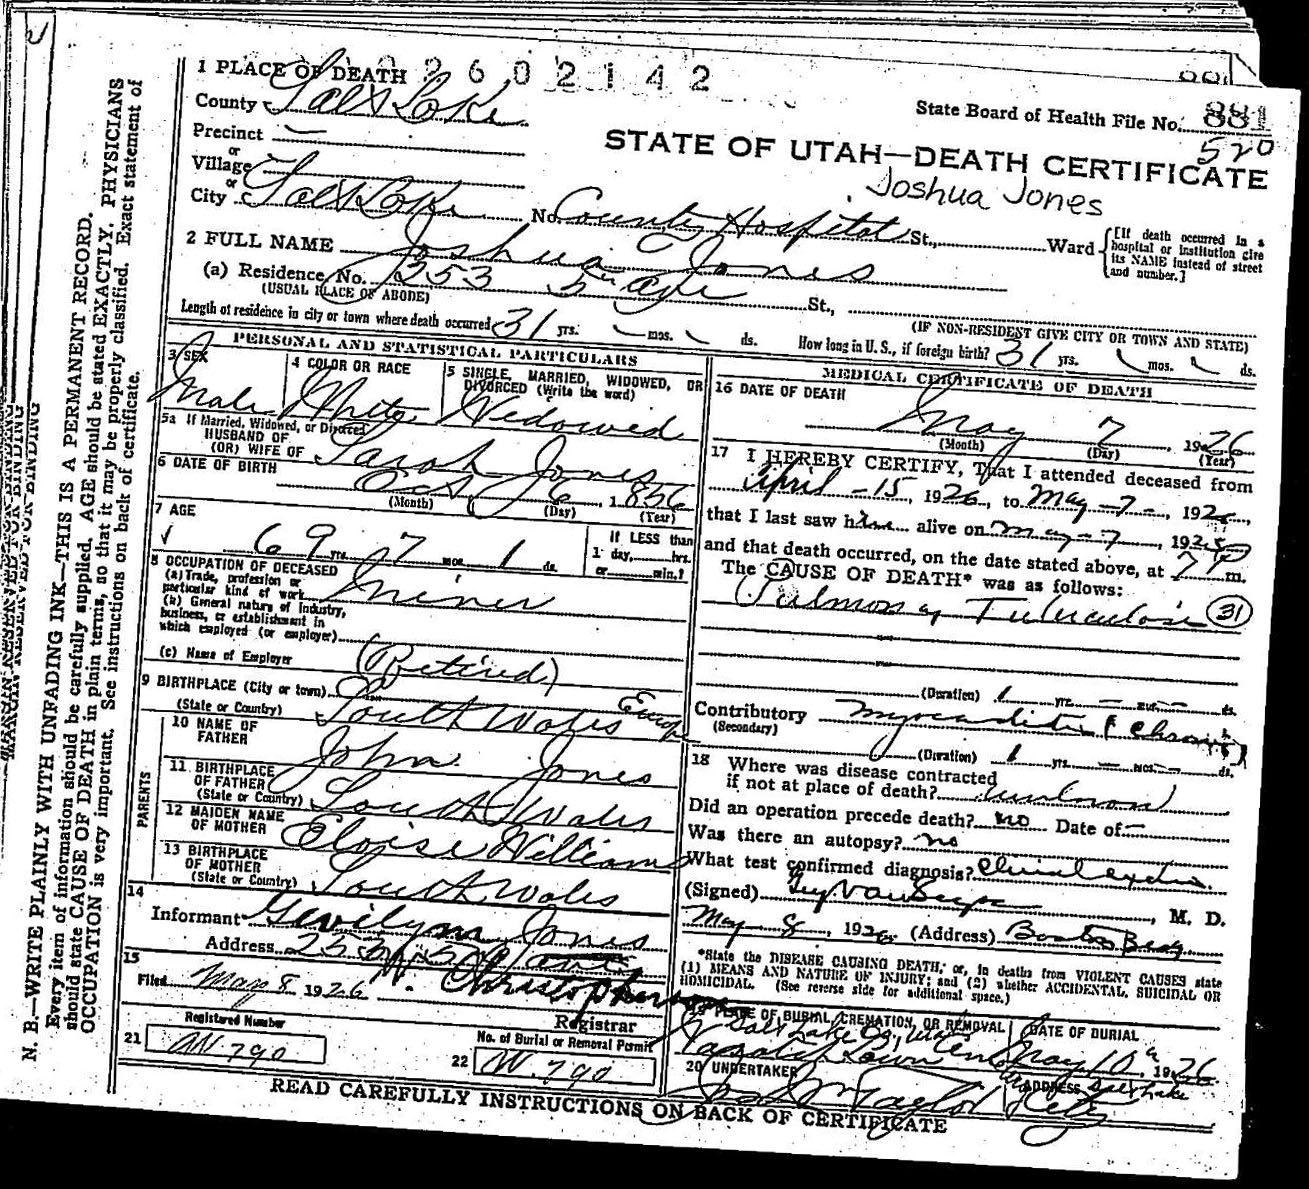 2602142
1 PLACE OF DEATH
County Salt Lake
State Board of Health File No. 881
520
Precinct —
or
Village
or
City Salt Lake No. County Hospital St., Ward
STATE OF UTAH—DEATH CERTIFICATE
Joshua Jones
[If death occurred in a hospital or institution give its NAME instead of street and number.]
2 FULL NAME Joshua Jones
(a) Residence No. 253 St.,
(USUAL PLACE OF ABODE)
(IF NON-RESIDENT GIVE CITY OR TOWN AND STATE)
Length of residence in city or town where death occurred 31 yrs. — mos. ds. How long in U. S., if foreign birth? 31 yrs. mos. ds.
PERSONAL AND STATISTICAL PARTICULARS
3 SEX
Male
4 COLOR OR RACE
White
5 SINGLE, MARRIED, WIDOWED, OR DIVORCED (Write the word)
Widowed
5a If Married, Widowed, or Divorced
HUSBAND OF
(OR) WIFE OF Sarah Jones
6 DATE OF BIRTH
Oct 6 1856
(Month) (Day) (Year)
7 AGE
69 yrs. 7 mos. 1 ds.
If LESS than
1 day, hrs.
or min.?
8 OCCUPATION OF DECEASED
(a) Trade, profession or
particular kind of work Miner
(b) General nature of Industry,
business, or establishment in
which employed (or employer)
(c) Name of Employer (Retired)
9 BIRTHPLACE (City or town)
(State or Country) South Wales Europe
PARENTS
10 NAME OF
FATHER John Jones
11 BIRTHPLACE
OF FATHER
(State or Country) South Wales
12 MAIDEN NAME
OF MOTHER Eloise Williams
13 BIRTHPLACE
OF MOTHER
(State or Country) South Wales
14
Informant Gwilym Jones
Address
15
Filed May 8 1926 W. Christopherson
Registrar
Registered Number
21 W 790
No. of Burial or Removal Permit
22 W. 790
MEDICAL CERTIFICATE OF DEATH
16 DATE OF DEATH
May 7 1926
(Month) (Day) (Year)
17 I HEREBY CERTIFY, That I attended deceased from
April - 15, 1926, to May - 7 -, 1926,
that I last saw him alive on May - 7, 1926
and that death occurred, on the date stated above, at 7 P m.
The CAUSE OF DEATH* was as follows:
Pulmonary Tuberculosis 31
(Duration) 1 yrs. — mos. — ds.
Contributory Myocarditis (Chronic)
(Secondary)
(Duration) 1 yrs. — mos. — ds.
18 Where was disease contracted
if not at place of death? unknown
Did an operation precede death? no Date of —
Was there an autopsy? no
What test confirmed diagnosis? Clinical
(Signed) , M. D.
May 8, 1926 (Address) Boston Bldg
*State the DISEASE CAUSING DEATH, or, in deaths from VIOLENT CAUSES state
(1) MEANS AND NATURE OF INJURY; and (2) whether ACCIDENTAL, SUICIDAL OR
HOMICIDAL. (See reverse side for additional space.)
19 PLACE OF BURIAL, CREMATION, OR REMOVAL
Salt Lake Co., Utah
Wasatch Lawn Cem
DATE OF BURIAL
May 10 1926
20 UNDERTAKER
Taylor
ADDRESS
Salt Lake
City
READ CAREFULLY INSTRUCTIONS ON BACK OF CERTIFICATE
MARGIN RESERVED FOR BINDING
N. B.—WRITE PLAINLY WITH UNFADING INK—THIS IS A PERMANENT RECORD.
Every item of information should be carefully supplied. AGE should be stated EXACTLY. PHYSICIANS
should state CAUSE OF DEATH in plain terms, so that it may be properly classified. Exact statement of
OCCUPATION is very important. See instructions on back of certificate.